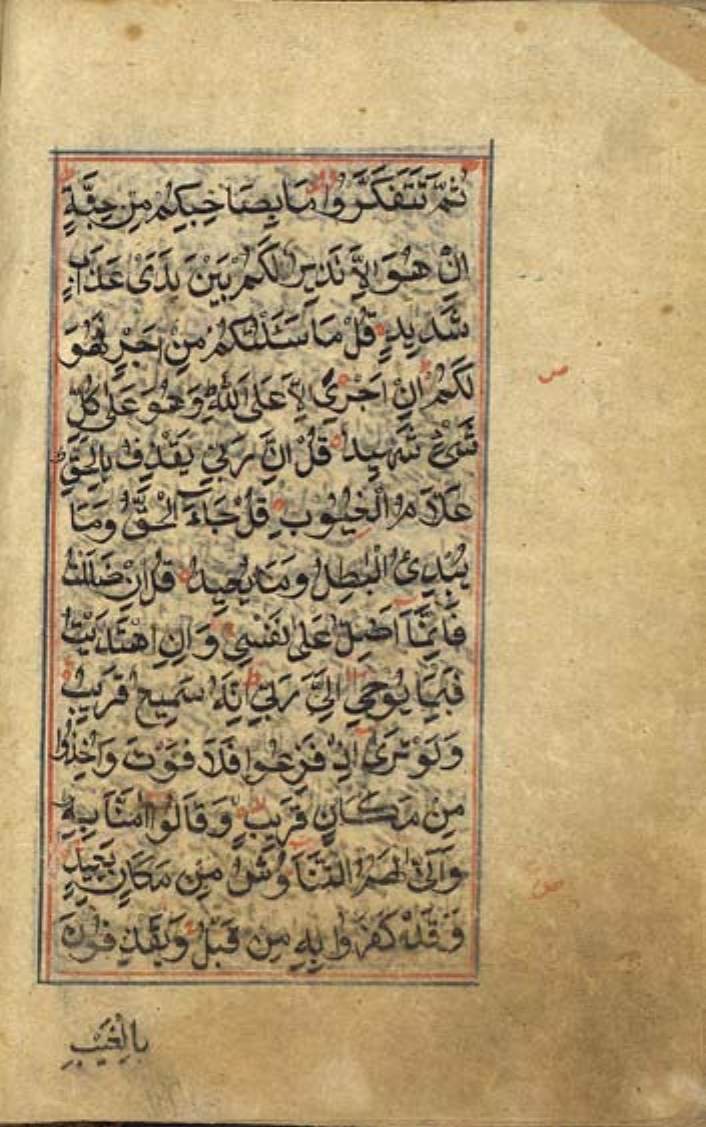 ثُمَّ تَتَفَكَّرُوا مَا بِصَاحِبِكُمْ مِنْ جِنَّةٍ
اِنْ هُوَ اِلَّا نَذِيرٌ لَكُمْ بَيْنَ يَدَىْ عَذَابٍ
شَدِيدٍ قُلْ مَا سَئَلْتُكُمْ مِنْ اَجْرٍ فَهُوَ
لَكُمْ اِنْ اَجْرِىَ اِلَّا عَلَى اللّٰهِ وَهُوَ عَلٰى كُلِّ
شَىْءٍ شَهِيدٌ قُلْ اِنَّ رَبِّى يَقْذِفُ بِالْحَقِّ
عَلَّامُ الْغُيُوبِ قُلْ جَاءَ الْحَقُّ وَمَا
يُبْدِئُ الْبَاطِلُ وَمَا يُعِيدُ قُلْ اِنْ ضَلَلْتُ
فَاِنَّمَا اَضِلُّ عَلٰى نَفْسِى وَاِنِ اهْتَدَيْتُ
فَبِمَا يُوحِى اِلَىَّ رَبِّى اِنَّهُ سَمِيعٌ قَرِيبٌ
وَلَوْ تَرٰى اِذْ فَزِعُوا فَلَا فَوْتَ وَاُخِذُوا
مِنْ مَكَانٍ قَرِيبٍ وَقَالُوا اٰمَنَّا بِهِ
وَاَنّٰى لَهُمُ التَّنَاوُشُ مِنْ مَكَانٍ بَعِيدٍ
وَقَدْ كَفَرُوا بِهِ مِنْ قَبْلُ وَيَقْذِفُونَ
بِالْغَيْبِ